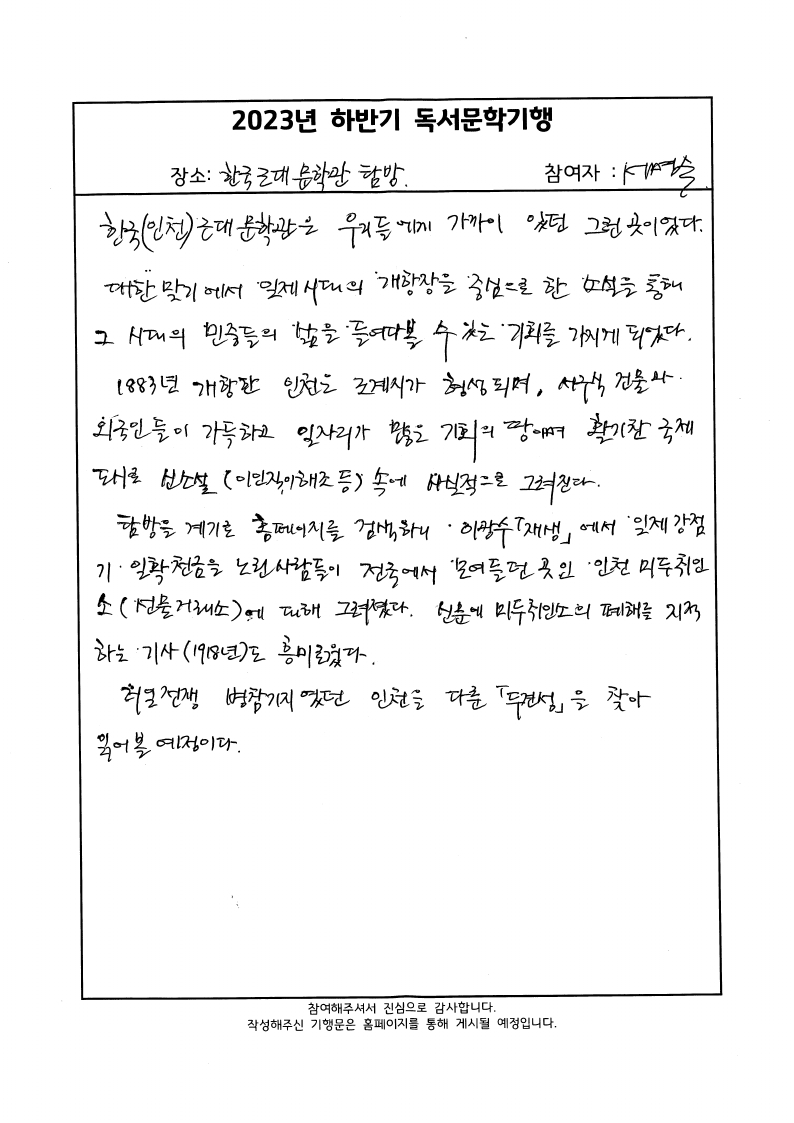 2023년 하반기 독서문학기행
장소: 한국근대문학관 탐방. 참여자 :
한국(인천)근대문학관은 우리들에게 가까이 있던 그런 곳이었다.
대한 말기에서 일제시대의 개항장을 중심으로 한 소설을 통해
그 시대의 민중들의 삶을 들여다볼 수 있는 기회를 가지게 되었다.
1883년 개항한 인천은 조계지가 형성되며, 서구식 건물과
외국인들이 가득하고 일자리가 많은 기회의 땅이며 활기찬 국제
도시로 신소설 (이인직,이해조 등) 속에 사실적으로 그려진다.
탐방을 계기로 홈페이지를 검색하니 이광수「재생」에서 일제강점
기 일확천금을 노린 사람들이 전국에서 모여들던 곳인 인천 미두취인
소(선물거래소)에 대해 그려졌다. 신문에 미두취인소의 폐해를 지적
하는 기사(1918년)도 흥미로웠다.
러일전쟁 병참기지였던 인천을 다룬 「두견성」을 찾아
읽어볼 예정이다.
참여해주셔서 진심으로 감사합니다.
작성해주신 기행문은 홈페이지를 통해 게시될 예정입니다.